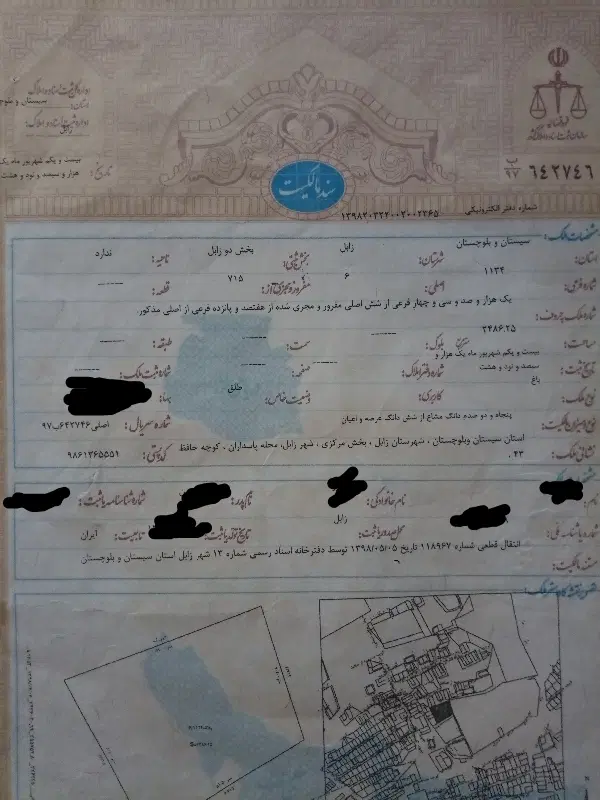 اداره کل ثبت اسناد و املاک
استان: سیستان و بلوچ
اداره ثبت اسناد و املاک:
زابل
بیست و یکم شهریور ماه یک
تاریخ:
هزار و سیصد و نود و هشت
قوه قضائیه
سازمان ثبت اسناد و املاک کشور
ب ۹۷ ۶۴۲۷۴۶
سند مالکیت
شماره دفتر الکترونیکی: ۱۳۹۸۲۰۳۲۴۰۰۲۰۰۲۲۶۵
مشخصات ملک:
استان: سیستان و بلوچستان شهرستان: زابل بخش ثبتی: بخش دو زابل ناحیه: ندارد
شماره فرعی: ۱۱۳۴ اصلی: ۶ مفروز و مجزی از: ۷۱۵ قطعه: -----
شماره ملک بحروف: یک هزار و صد و سی و چهار فرعی از شش اصلی مفروز و مجزی شده از هفتصد و پانزده فرعی از اصلی مذکور
مساحت: ۳۴۸۶.۲۵ مترمربع بلوک: ----- سمت: ----- طبقه: -----
تاریخ ثبت: بیست و یکم شهریور ماه یک هزار و سیصد و نود و هشت شماره دفتر املاک: ----- صفحه: ----- شماره ثبت ملک: -----
نوع ملک: باغ کاربری: وضعیت خاص: طلق بهاء:
نوع و میزان مالکیت: پنجاه و دو صدم دانگ مشاع از شش دانگ عرصه و اعیان شماره سریال: اصلی۶۴۲۷۴۶ب۹۷
نشانی ملک: استان سیستان وبلوچستان ، شهرستان زابل ، بخش مرکزی ، شهر زابل، محله پاسداران ، کوچه حافظ کدپستی: ۹۸۶۱۳۶۵۵۵۱
۴۳ .
نام: نام خانوادگی: نام پدر: شماره شناسنامه یا ثبت:
شماره یا شناسه ملی: محل صدور یا ثبت: زابل تاریخ تولد یا ثبت: تابعیت: ایران
مستند مالکیت: انتقال قطعی شماره ۱۱۸۹۶۷ تاریخ ۱۳۹۸/۰۵/۰۵ توسط دفترخانه اسناد رسمی شماره ۱۲ شهر زابل استان سیستان و بلوچستان